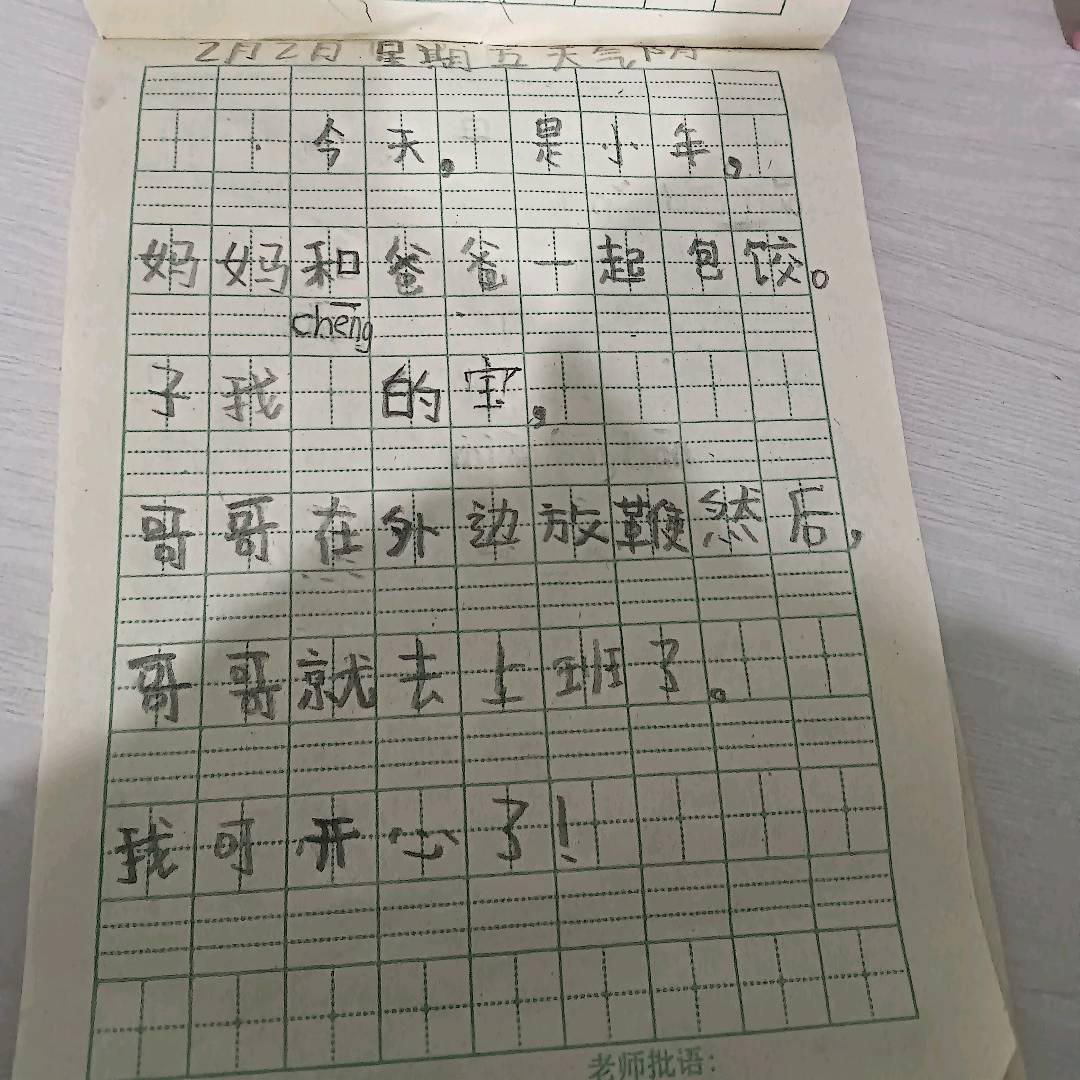 2月2月 星期五天气阴
今天。是小年，
妈妈和爸爸一起包饺。
chēng
子我 的宝，
哥哥在外边放鞭然后，
哥哥就去上班了。
我可开心了！
老师批语：